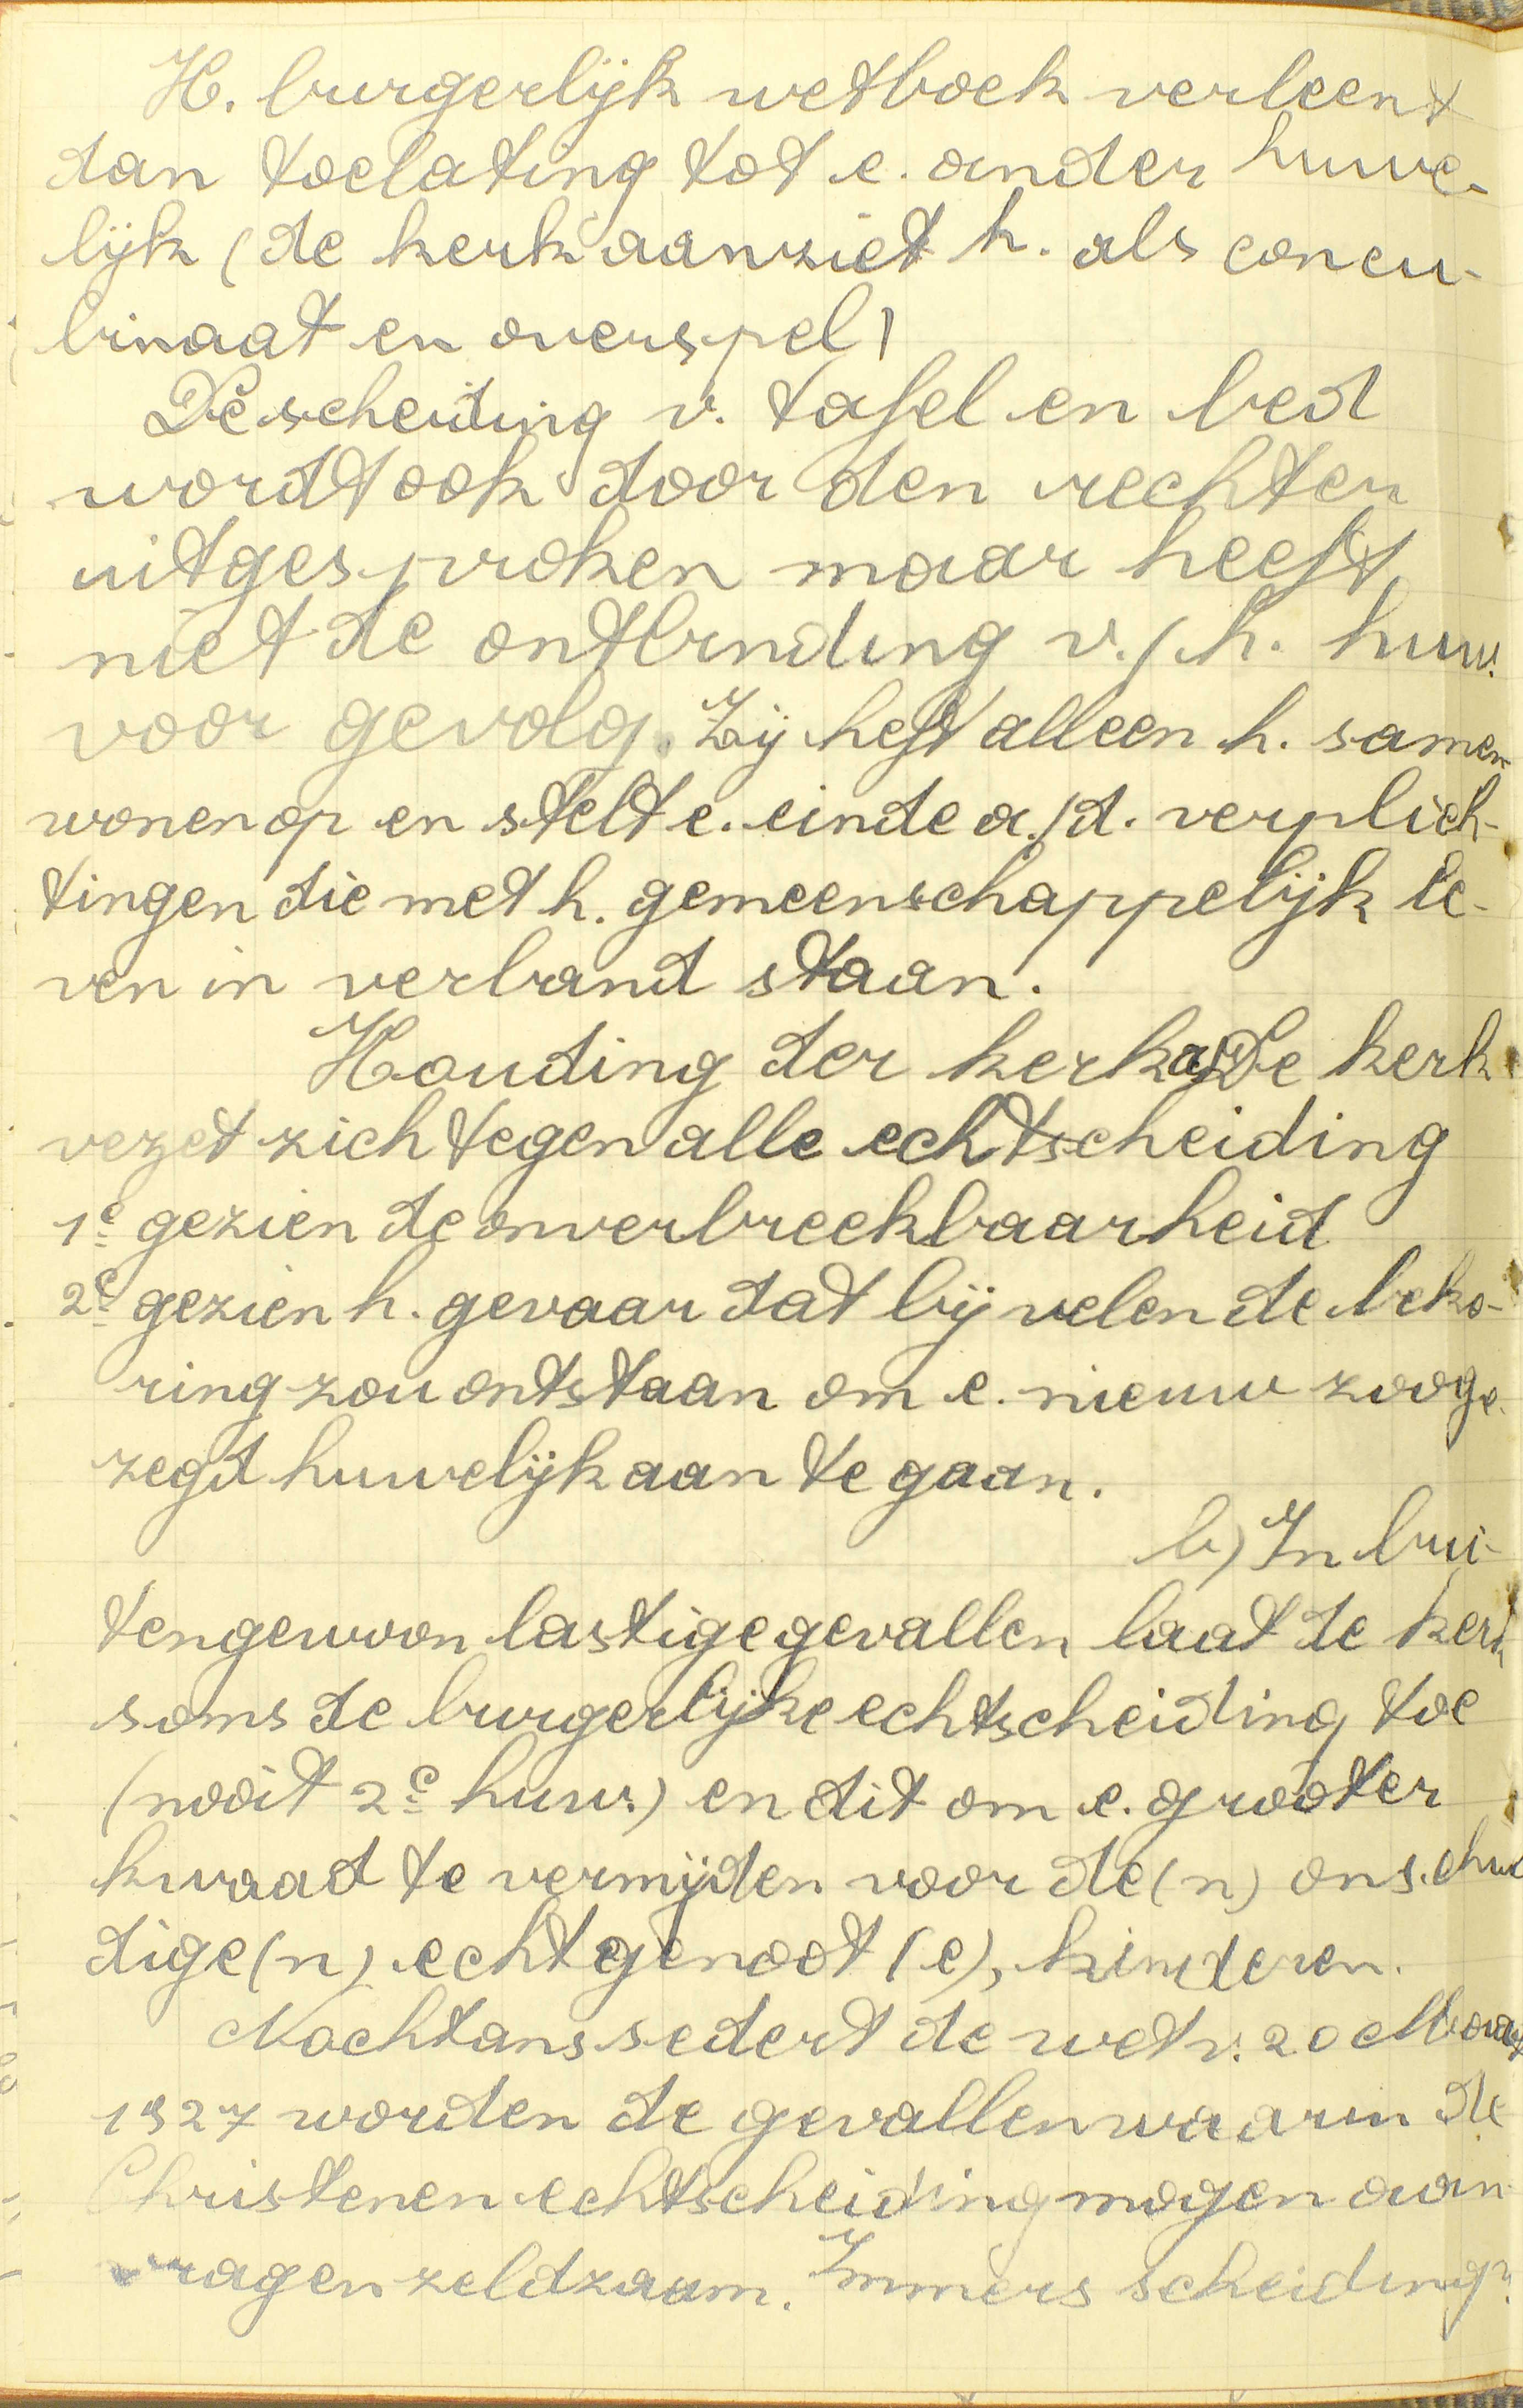 H. burgerlijk wetboek verleent
dan toelating tot e. ander huwe-
lijk (de kerk aanziet h. als concu-
binaat en overspel)
De scheiding v. tafel en bed
wordt ook door den rechter
uitgesproken maar heeft
niet de ontbinding v./h. huw.
voor gevolg. Zij heft alleen h. samen
wonen op en stelt e. einde a./d. verplich-
tingen die met h. gemeenschappelijk le-
ven in verband staan.
Houding der kerk a) De kerk
vezet zich tegen alle echtscheiding
1e gezien de onverbreekbaarheid
2e gezien h. gevaar dat bij velen de beko-
ring zou ontstaan om e. nieuw zooge-
zegd huwelijk aan te gaan.
b) In bui-
tengewoon lastige gevallen laat de kerk
soms de burgerlijke echtscheiding toe
(nooit 2e huw.) en dit om e. grooter
kwaad te vermijden voor de(n) onschul
dige(n) echtgenoot (e), kinderen.
Nochtans sedert de wet v. 20 Maart
1927 worden de gevallen waarin de
Christenen echtscheiding mogen aan-
vragen zeldzaam. Immers scheiding